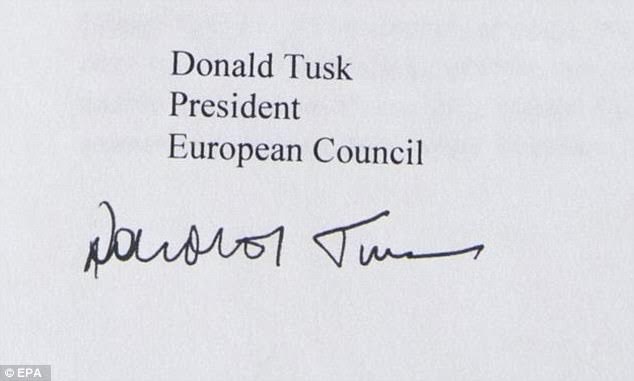 Donald Tusk
President
European Council
Donald Tusk
© EPA